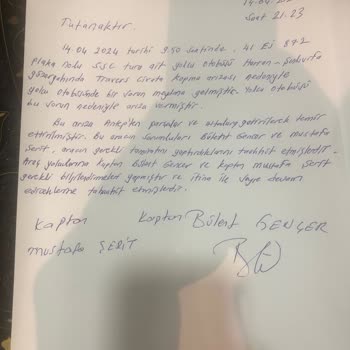 14.04.
Saat 21.23
Tutanaktır.
14.04.2024 tarihi 9.50 saatinde, 41 EJ 872
Plaka nolu S.S.C tura ait yolcu otobüsü Harran - Şanlıurfa
güzergahında Travers Civata kopma arızası nedeniyle
yolcu otobüsünde bir sorun meydana gelmiştir. Yolcu otobüsü
bu sorun nedeniyle arıza vermiştir.
Bu arıza Antep'ten parçalar ve ustalar getirilerek tamir
ettirilmiştir. Bu aracın sorumluları Bülent Gencer ve mustafa
Şerit, aracın gerekli tamiratını yaptıracaklarını taahhüt etmişlerdir.
Araç yolcularına kaptan Bülent Gencer ve kaptan mustafa Şerit
gerekli bilgilendirmeleri yapmıştır ve itina ile yola devam
edeceklerine taahhüt etmişlerdir.
Kaptan Kaptan Bülent GENÇER
mustafa ŞERİT